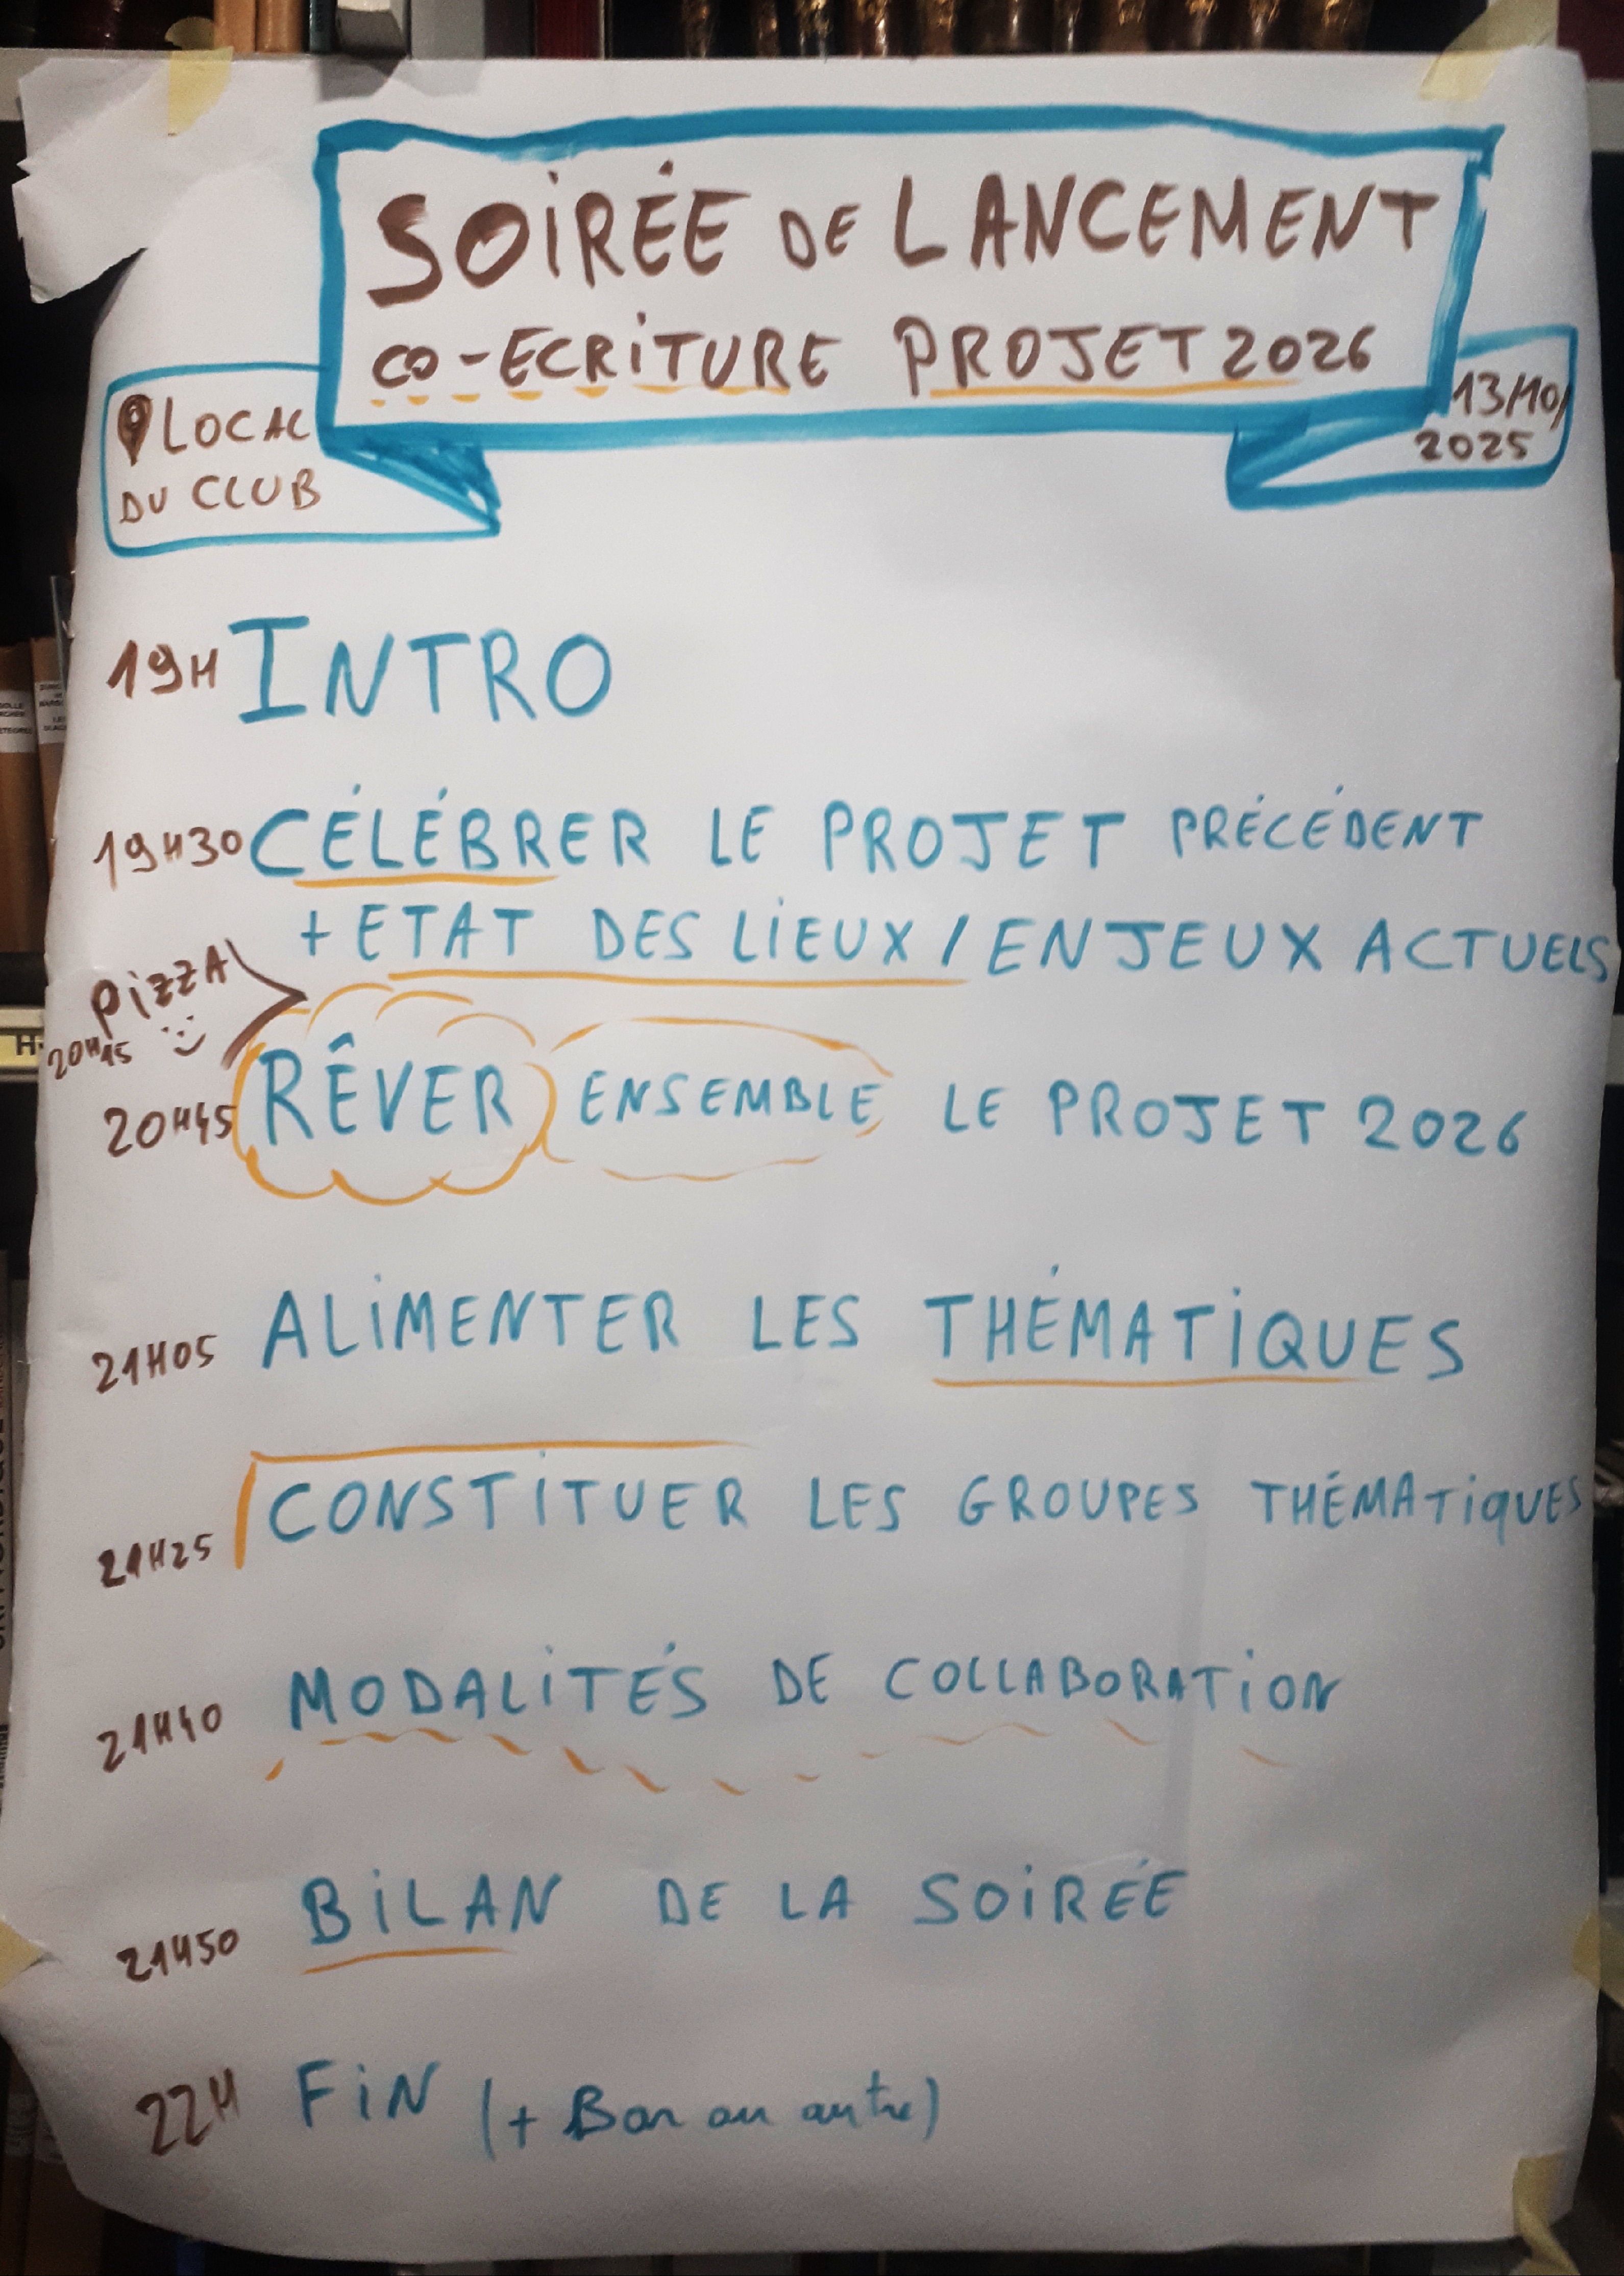 SOIRÉE DE LANCEMENT
CO-ECRITURE PROJET 2026
LOCAL
DU CLUB
13/10/
2025
19H INTRO
19H30 CÉLÉBRER LE PROJET PRÉCÉDENT
+ ETAT DES LIEUX / ENJEUX ACTUELS
PIZZA
20H15
20H45 RÊVER ENSEMBLE LE PROJET 2026
21H05 ALIMENTER LES THÉMATIQUES
21H25 CONSTITUER LES GROUPES THÉMATIQUES
21H40 MODALITÉS DE COLLABORATION
21H50 BILAN DE LA SOIRÉE
22H FIN (+ Bar ou autre)